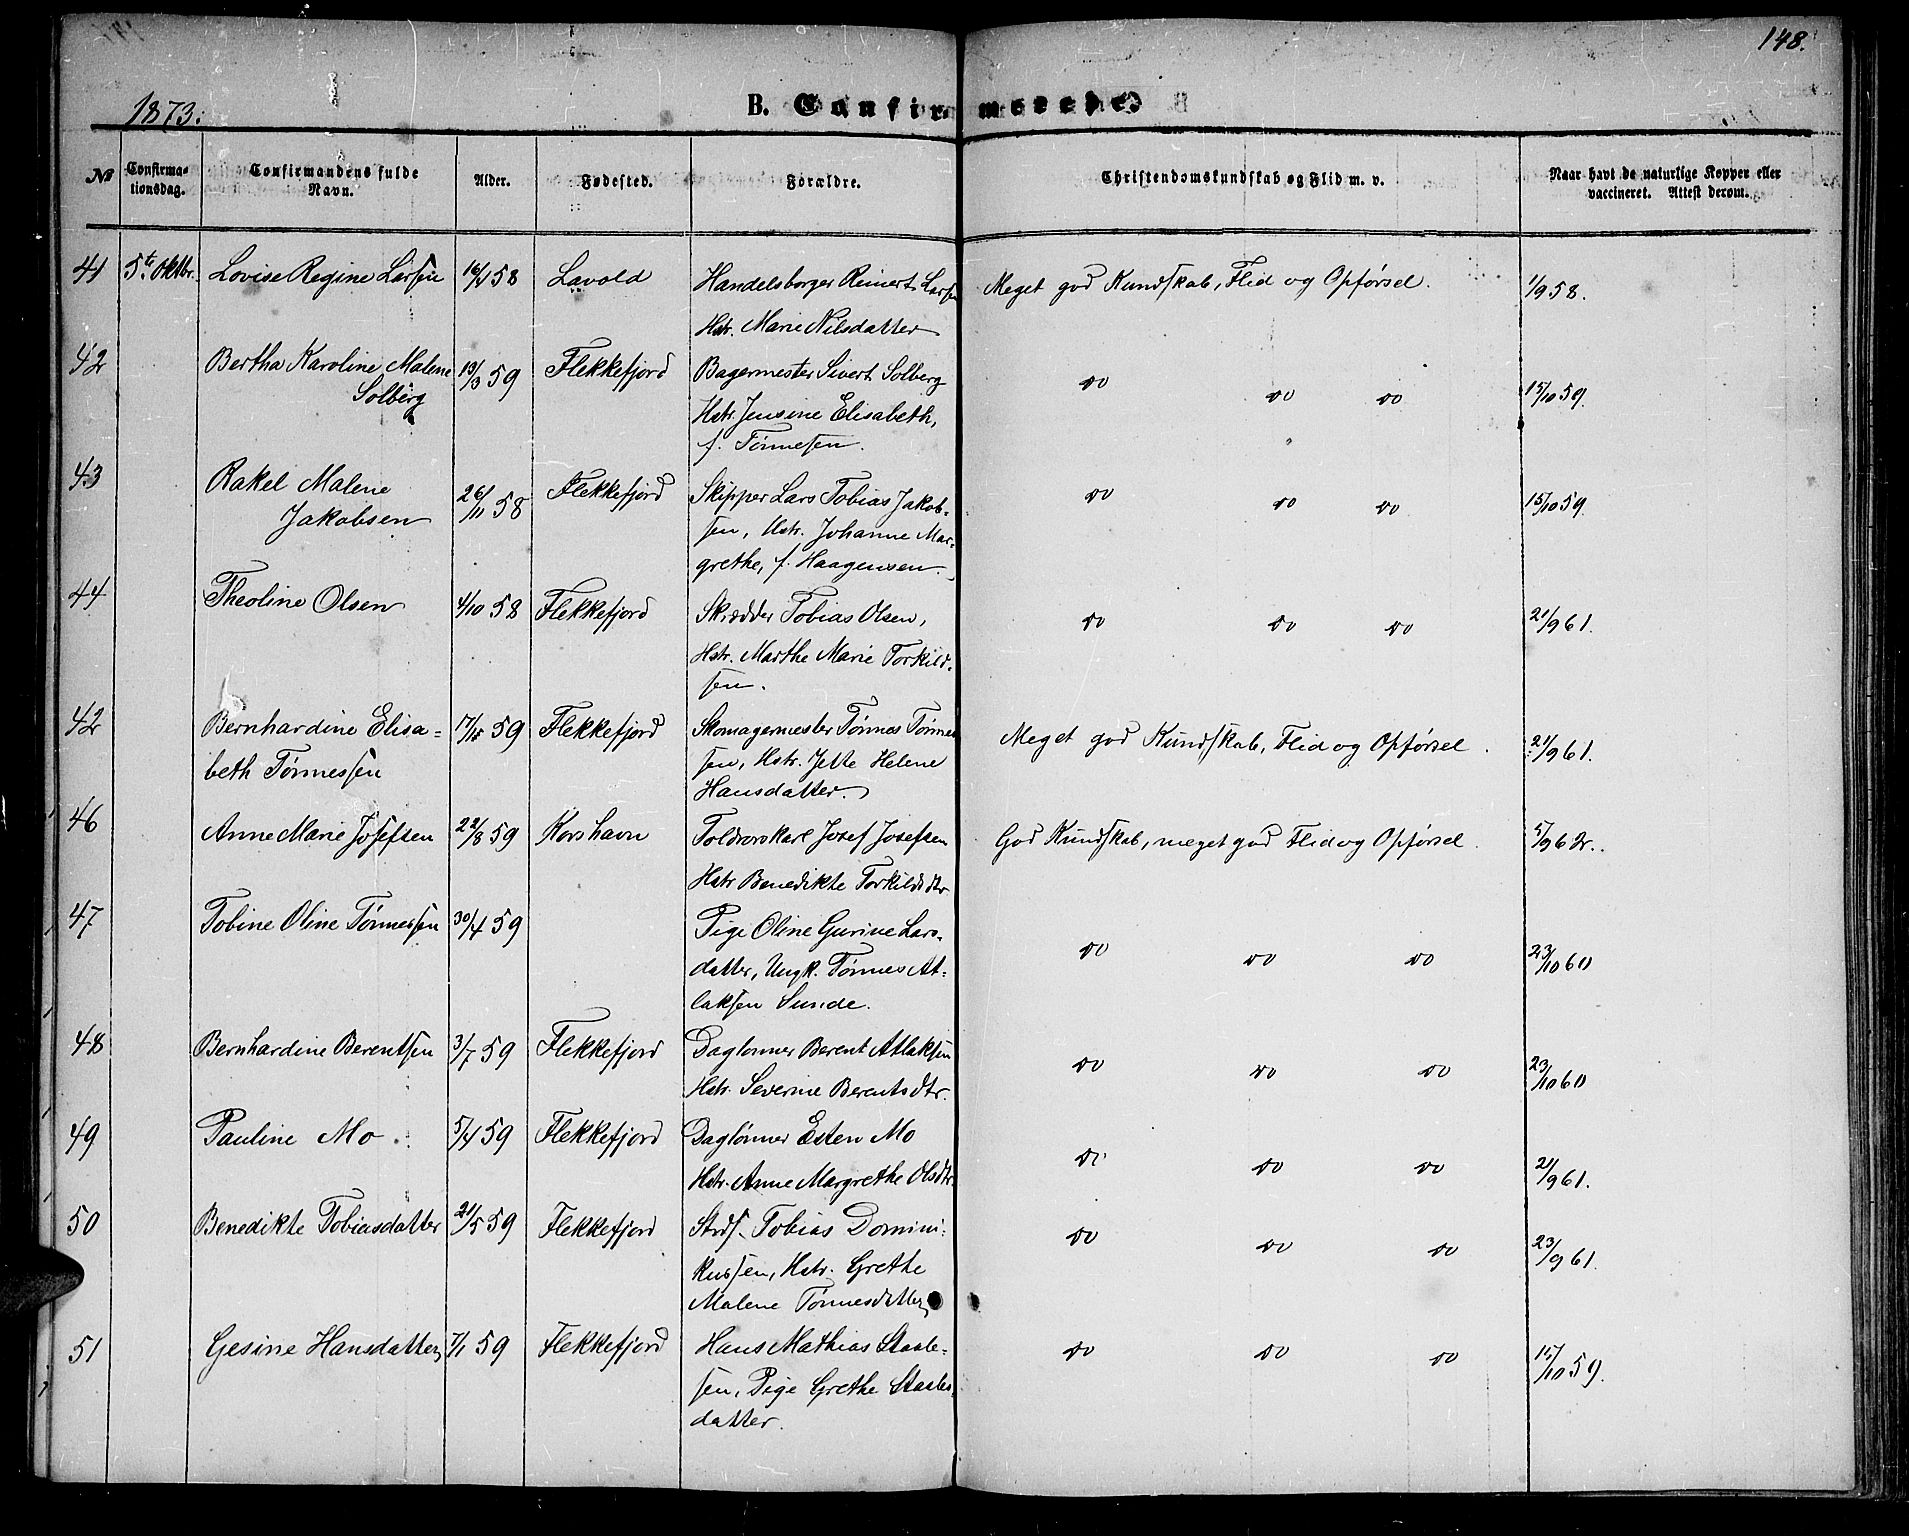 148.
1873.
B. Confirmerede.
No
Confirma-
tionsdag.
Confirmandens fulde
Navn.
Alder.
Fødested.
Forældre.
Christendomskundskab og Flid m. v.
Naar havt de naturlige Kopper eller
vaccineret. Attest derom.
41 5te Oktbr. Lovise Regine Larsen 16/4 58 Lavold Handelsborger Reinert Larsen Meget god Kundskab, Flid og Opførsel. 1/9 58.
Hstr. Marie Nilsdatter
42 Bertha Karoline Malene 13/3 59 Flekkefjord Bagermester Sivert Solberg do do do 15/10 59.
Solberg Hstr. Jensine Elisabeth,
f. Tønnesen.
43 Rakel Malene 26/11 58 Flekkefjord Skipper Lars Tobias Jakob- do do do 15/10 59.
Jakobsen sen, Hstr. Johanne Mar-
grethe, f. Haagensen.
44 Theoline Olsen 4/10 58 Flekkefjord Skrædder Tobias Olsen, do do do 21/9 61.
Hstr. Marthe Marie Torkild-
sen.
42 Bernhardine Elisa- 59 Flekkefjord Skomagermester Tønnes Tønnes Meget god Kundskab, Flid og Opførsel. 21/9 61.
beth Tønnessen sen, Hstr. Jette Helene
Hansdatter.
46 Anne Marie Josefsen 22/8 59 Korshavn Toldrorskarl Josef Josefsen God Kundskab, meget god Flid og Opførsel. 5/9 62.
Hstr Benedikte Torkildsdtr
47 Tobine Oline Tønnessen 30/4 59 Pige Oline Gurine Lars- do do do 23/10 60
datter, Ungk. Tønnes At-
laksen Sunde.
48 Bernhardine Berentsen 3/7 59 Flekkefjord Daglønner Berent Atlaksen do do do 23/10 60
Hstr. Severine Berentsdtr.
49 Pauline Mo. 5/4 59 Flekkefjord Daglønner Esten Mo do do do 21/9 61.
Hstr. Anne Margrethe Olsdtr.
50 Benedikte Tobiasdatter 21/5 59 Flekkefjord Strds. Tobias Domini- do do do 23/9 61.
kussen, Hstr. Grethe
Malene Tønnesdatter
51 Gesine Hansdatter 7/1 59 Flekkefjord Hans Mathias Staale- do do do 15/10 59.
sen, Pige Grethe Staales
datter.